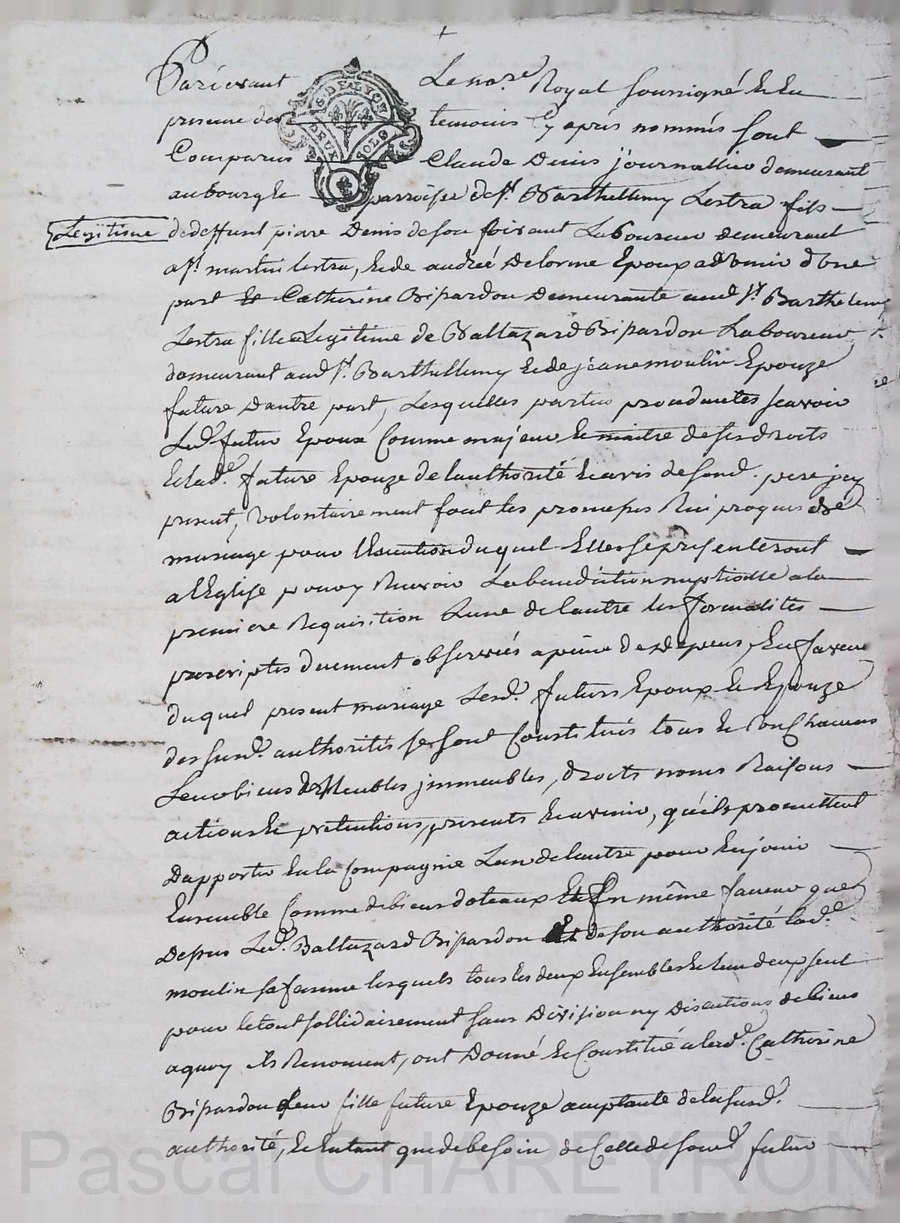 Pardevant Le no.re Royal soussigné Et En
presence des temoins Cy aprés nommés sont
G. DE LYON
DEUX SOLS
Comparus Claude Denis journallier demeurant
au bourg Et parroisse de st. Barthellemy Lestra fils
Legitime de deffunt piare Denis de son vivant Laboureur demeurant
a st. martin lestra, Et de andrée Delorme Epoux advenir d'une
part Et Catherine Bripardon Demeurante aud. st. Barthelemy
Lestra fille Legitime de Baltazard Bripardon Laboureur
demeurant aud. st. Barthellemy Et de jeane moulin Epouze
future d'autre part, Lesquelles parties procedantes scavoir
Led. futur Epoux Comme majeur Et maitre de ses droits
Et lad.e future Epouze de l'authorité Et avis de sond. pere jcy
present, volontairement font les promesses Reciproques de
mariage pour l'Execution duquel Elles se presenteront
a l'Eglise pour y Recevoir La benediction nuptialle a la
premiere Requisition L'une de l'autre les formalités
prescriptes duement observées a peine de Depens, En faveur
duquel present mariage Lesd. futurs Epoux Et Epouze
des susd. authorités se sont Constitués tous Et Un Chacuns
Leurs biens Meubles jmmeubles, droits noms Raisons
actions Et pretentions, presents Et avenir, qu'ils promettent
D'apporter En la Compagnie L'un de l'autre pour En jouir
Ensemble Comme de biens doteaux Et En même faveur que
Depus Led. Baltazard Bripardon Et de son authorité lad.e
moulin sa femme lesquels tous les deux Ensembles Et l'un deux seul
pour le tout sollidairement sans Division ny Discutions de biens
a quoy ils Renoncent, ont Donné Et Constitué a lad.e Catherine
Bripardon leur fille future Epouze acceptante de la susd.
authorité, Et Entant que de besoin de Celle de sond. futur
Pascal CHAREYRON